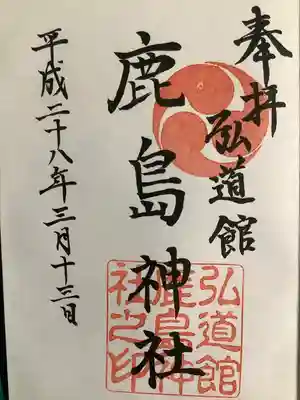 奉拝
弘道館
鹿島神社
平成二十八年三月十三日
弘道館
鹿島神
社之印